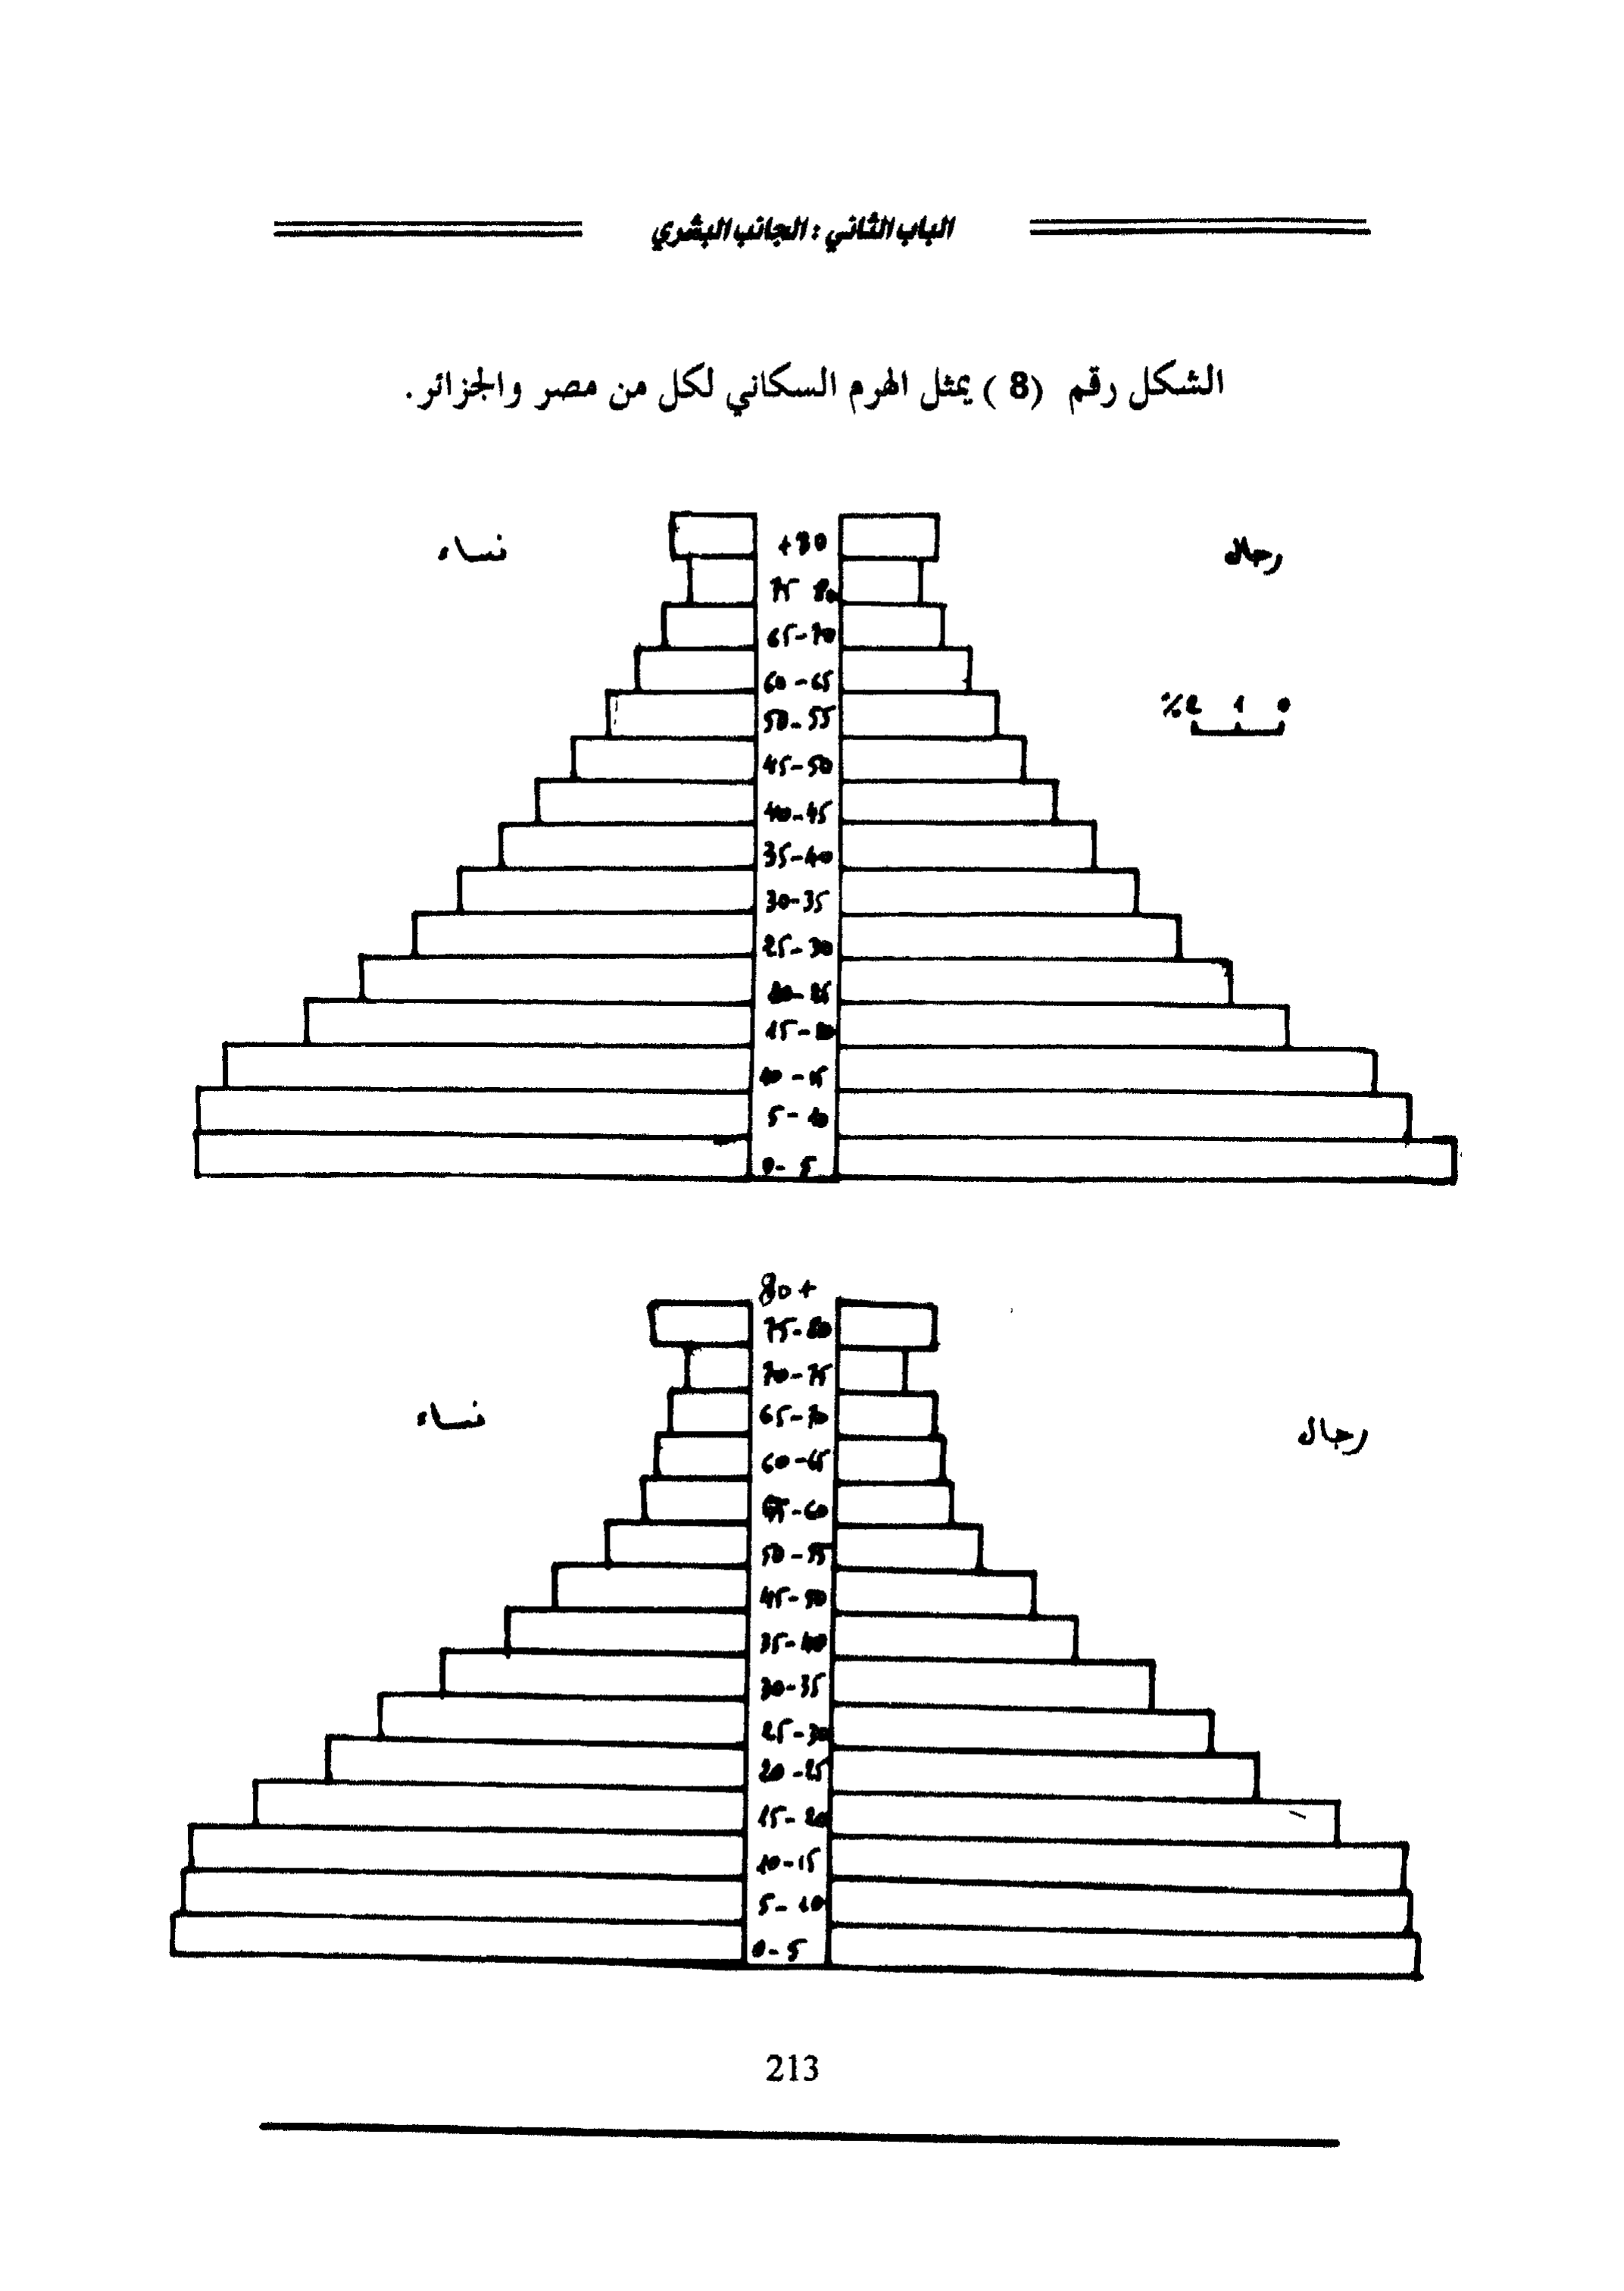 الباب الثاني : الجانب البشري
الشكل رقم (8) يمثل الهرم السكاني لكل من مصر والجزائر.
نساء
رجال
+80
75 80
65-70
60-65
50-55
45-50
40-45
35-40
30-35
25-30
20-25
15-20
10-15
5-10
0-5
%2 1 0
80+
نساء
رجال
75-80
70-75
65-70
60-65
55-60
50-55
45-50
35-40
30-35
25-30
20-25
15-20
10-15
5-10
0-5
213